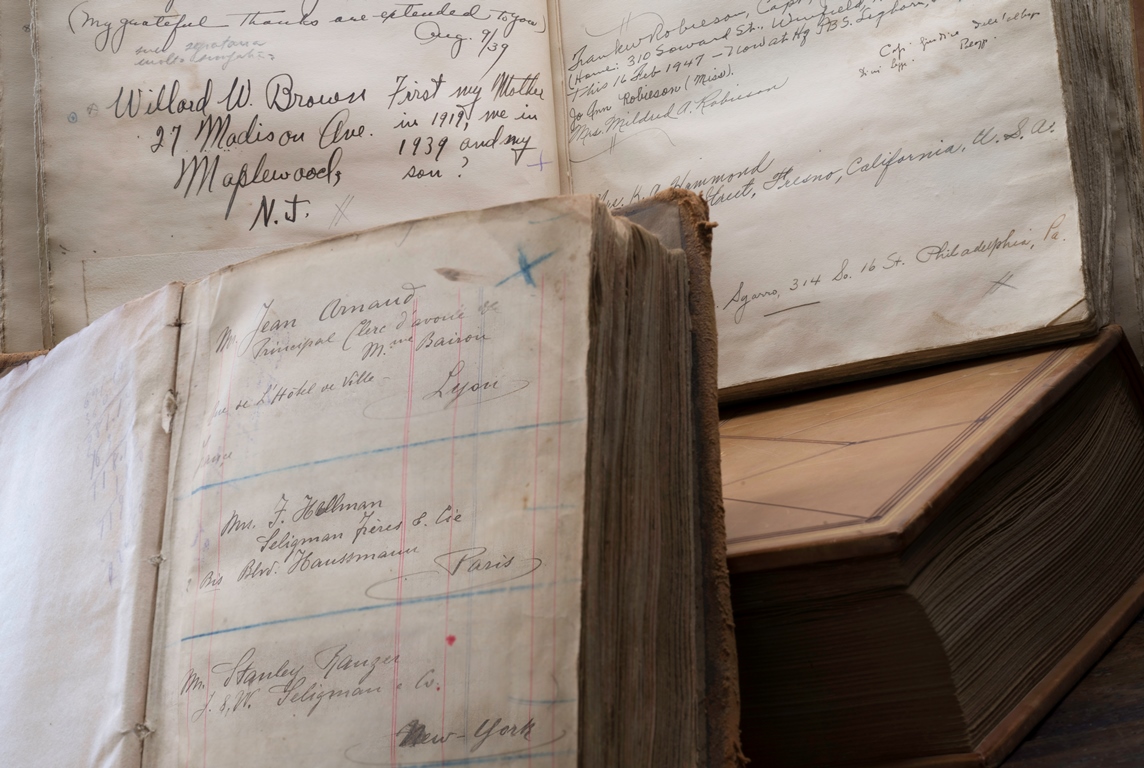 (My grateful thanks are extended to you)
Aug. 9/39
Willard W. Brown
27 Madison Ave.
Maplewood,
N.J.
First my Mother
in 1919, me in
1939 and my
son?
Robieson, Capt
(Home: 310 Soward St., Winfield,
This 16 Feb 1947 - Now at Hq PBS. Leghorn,
Jo Ann Robieson (Miss).
Mrs. Mildred A. Robieson
Hammond
Street, Fresno, California, U.S.A.
314 So. 16 St. Philadelphia, Pa.
Mr. Jean Arnaud
Principal Clerc d'avoué
Mme Bairon
de L'Hôtel de Ville
Lyon
Mrs. F. Hellman
Seligman Frères & Cie
Bis Blvd. Haussmann
Paris
Mr. Stanley Ranger
J. & W. Seligman & Co.
New-York